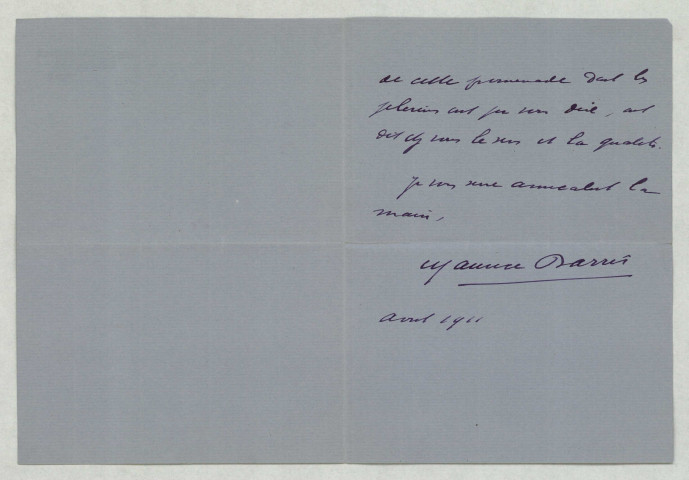 de cette promenade dont les
pelerins ont pu vous dire, ont
dit chez vous le sens et la qualité.
je vous serre amicalement la
main,
Maurice Barrès
avril 1911